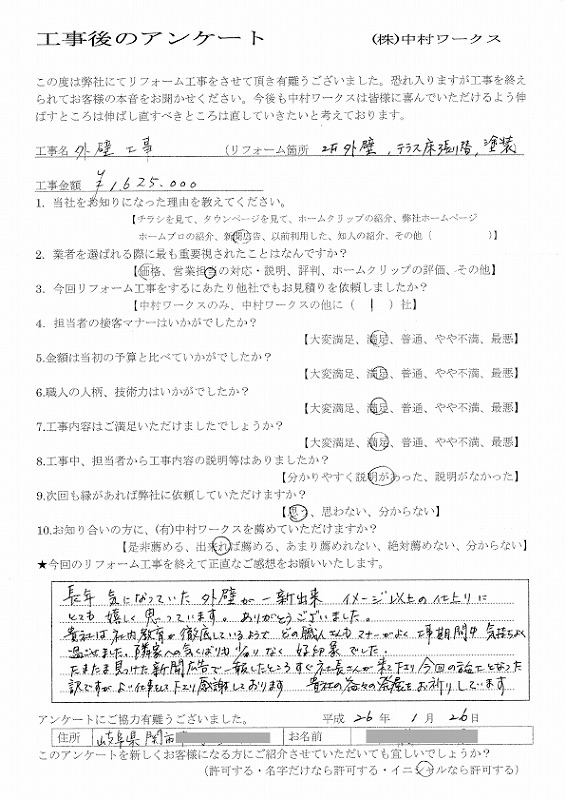 工事後のアンケート　(株)中村ワークス
この度は弊社にてリフォーム工事をさせて頂き有難うございました。恐れ入りますが工事を終え
られてお客様の本音をお聞かせください。今後も中村ワークスは皆様に喜んでいただけるよう伸
ばすところは伸ばし直すべきところは直していきたいと考えております。
工事名 外壁工事 (リフォーム箇所 外壁, テラス床張替, 塗装
工事金額 ¥1,625.000
1. 当社をお知りになった理由を教えてください。
【チラシを見て、タウンページを見て、ホームクリップの紹介、弊社ホームページ
ホームプロの紹介、新聞広告、以前利用した、知人の紹介、その他（　　　）】
2. 業者を選ばれる際に最も重要視されたことはなんですか?
【価格、営業担当の対応・説明、評判、ホームクリップの評価、その他】
3. 今回リフォーム工事をするにあたり他社でもお見積りを依頼しましたか?
【中村ワークスのみ、中村ワークスの他に（ 1 ）社】
4. 担当者の接客マナーはいかがでしたか?
【大変満足、満足、普通、やや不満、最悪】
5.金額は当初の予算と比べていかがでしたか?
【大変満足、満足、普通、やや不満、最悪】
6.職人の人柄、技術力はいかがでしたか?
【大変満足、満足、普通、やや不満、最悪】
7.工事内容はご満足いただけましたでしょうか?
【大変満足、満足、普通、やや不満、最悪】
8.工事中、担当者から工事内容の説明等はありましたか?
【分かりやすく説明があった、説明がなかった】
9.次回も縁があれば弊社に依頼していただけますか?
【思う、思わない、分からない】
10.お知り合いの方に、(有)中村ワークスを薦めていただけますか?
【是非薦める、出来れば薦める、あまり薦めれない、絶対薦めない、分からない】
★今回のリフォーム工事を終えて正直なご感想をお願いいたします。
長年 気になっていた 外壁が一新出来 イメージ以上の仕上りに
とても 嬉しく 思っています。 ありがとうございました。
貴社は社内教育が徹底しているようで どの職人さんも マナーがよく 工事期間中 気持ちよく
過ごせました。隣家への気くばりも 好印象でした。
たまたま見つけた新聞広告で一報したところ すぐ社長さんが来て下さり 今回の施工となった
訳ですが よい仕事をして下さり感謝しております 貴社の益々の発展をお祈りしています
アンケートにご協力有難うございました。 平成 26 年 1 月 26 日
住所 岐阜県関市 お名前
このアンケートを新しくお客様になる方にご紹介させていただいても宜しいでしょうか?
(許可する・名字だけなら許可する・イニシャルなら許可する)